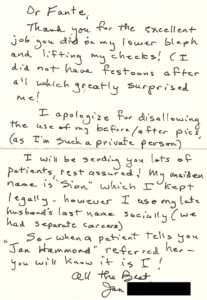 Dr Fante,
Thank you for the excellent
job you did on my lower bleph
and lifting my cheeks! (I
did not have festoons after
all which greatly surprised
me!
I apologize for disallowing
the use of my before/after pics
(as I'm such a private person)
I will be sending you lots of
patients, rest assured! My maiden
name is "Sion" which I kept
legally - however I use my late
husband's last name socially (we
had separate careers)
So - when a patient tells you
"Jan Hammond" referred her -
you will know it is I!
All the Best,
Jan